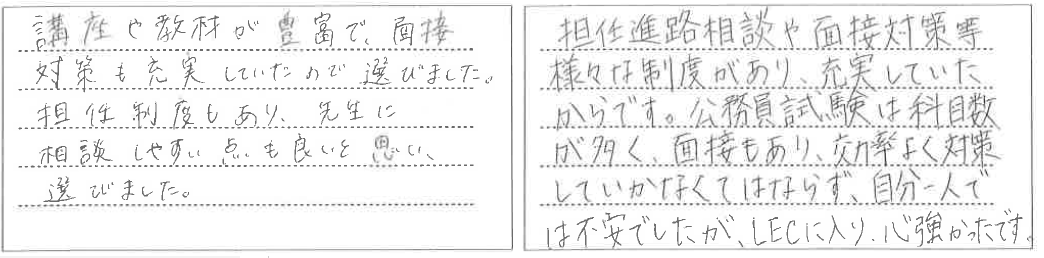 講座や教材が豊富で、面接
対策も充実していたので選びました。
担任制度もあり、先生に
相談しやすい点も良いと思い、
選びました。
担任進路相談や面接対策等
様々な制度があり、充実していた
からです。公務員試験は科目数
が多く、面接もあり、効率よく対策
していかなくてはならず、自分一人で
は不安でしたが、LECに入り、心強かったです。